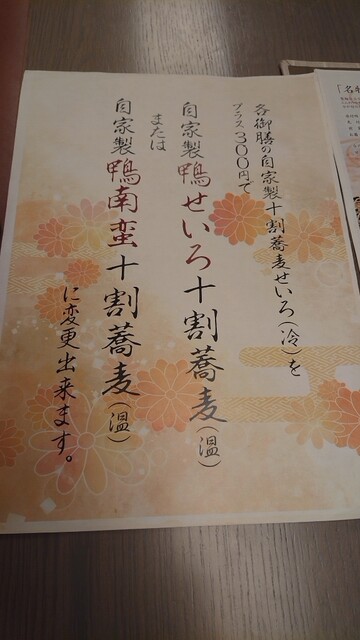 各御膳の自家製十割蕎麦せいろ(冷)を
プラス300円で
自家製鴨せいろ十割蕎麦(温)
または
自家製鴨南蛮十割蕎麦(温)
に変更出来ます。